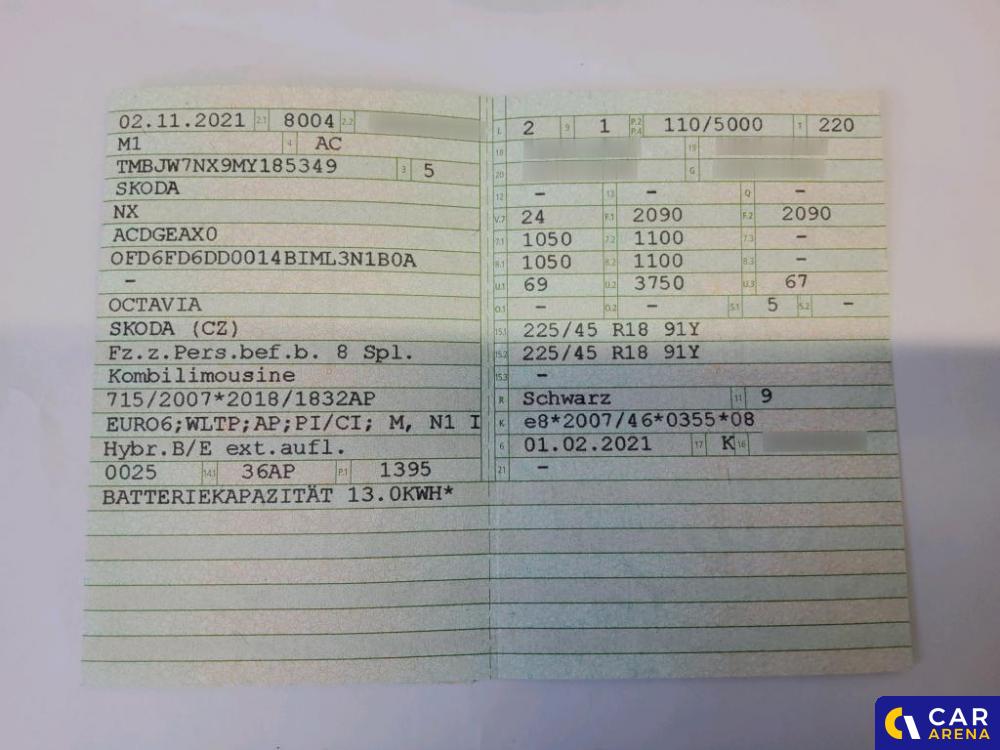 02.11.2021 2.1 8004 2.2
M1 4 AC
TMBJW7NX9MY185349 3 5
SKODA
NX
ACDGEAX0
OFD6FD6DD0014BIML3N1B0A
–
OCTAVIA
SKODA (CZ)
Fz.z.Pers.bef.b. 8 Spl.
Kombilimousine
715/2007*2018/1832AP
EURO6;WLTP;AP;PI/CI; M, N1 I
Hybr.B/E ext.aufl.
0025 14.1 36AP P.1 1395
BATTERIEKAPAZITÄT 13.0KWH*
L 2 9 1 P.2 P.4 110/5000 T 220
18 19
20 G
12 – 13 – Q –
V.7 24 F.1 2090 F.2 2090
7.1 1050 7.2 1100 7.3 –
8.1 1050 8.2 1100 8.3 –
U.1 69 U.2 3750 U.3 67
O.1 – O.2 – S.1 5 S.2 –
15.1 225/45 R18 91Y
15.2 225/45 R18 91Y
15.3 –
R Schwarz 11 9
K e8*2007/46*0355*08
6 01.02.2021 17 K 16
21 –
CAR
ARENA